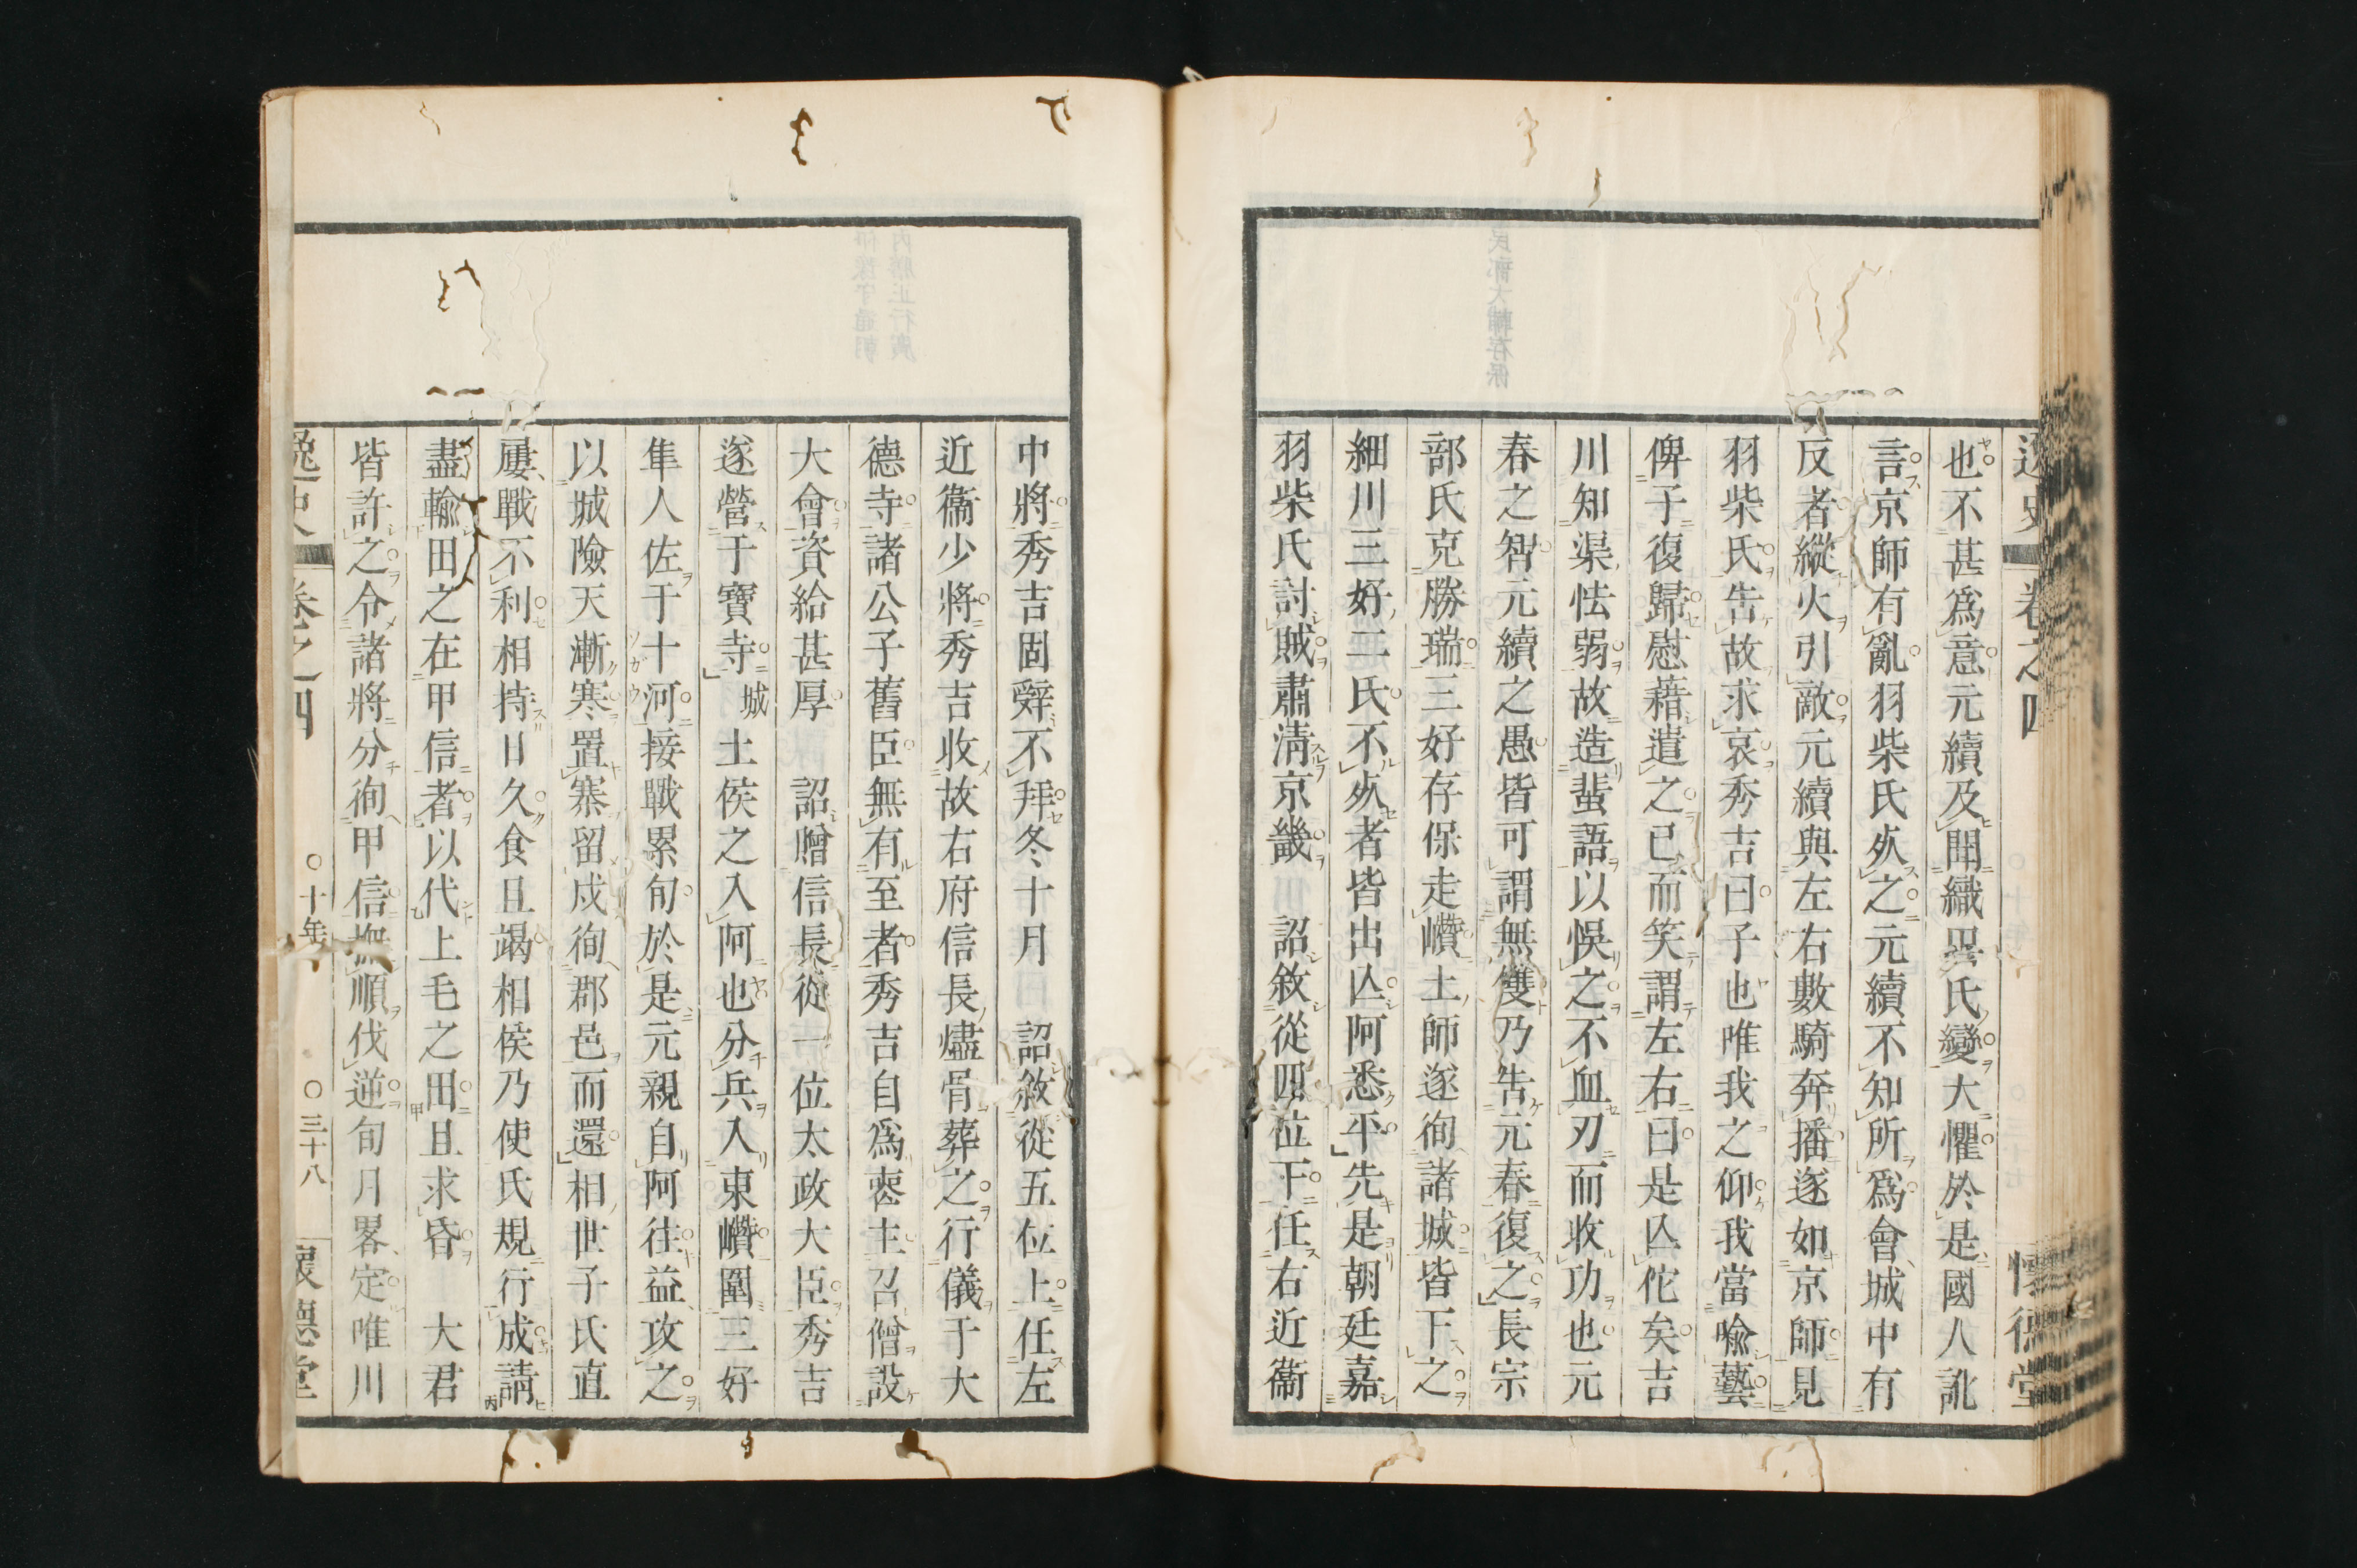 逸史 卷之四 懷德堂
也不甚爲意元續及聞織田氏變大懼於是國人訛
言京師有亂羽柴氏㱕之元續不知所爲會城中有
反者縱火引敵元續與左右數騎奔播遂如京師見
羽柴氏告故求哀秀吉曰子也唯我之仰我當喩藝
俾子復歸慰藉遣之已而笑謂左右曰是亾佗矣吉
川知渠怯弱故造蜚語以悞之不血刃而收功也元
春之智元續之愚皆可謂無雙乃告元春復之長宗
部氏克勝瑞三好存保走巑土師遂徇諸城皆下之
細川三好二氏不㱕者皆出亾阿悉平先是朝廷嘉
羽柴氏討賊肅淸京畿 詔敘從四位下任右近衞
中將秀吉固辭不拜冬十月 詔敘從五位上任左
近衞少將秀吉收故右府信長燼骨葬之行儀于大
德寺諸公子舊臣無有至者秀吉自爲喪主召僧設
大會資給甚厚 詔贈信長從一位太政大臣秀吉
遂營于寶寺城 土侯之入阿也分兵入東巑圍三好
隼人佐于十河接戰累旬於是元親自阿往益攻之
以城險天漸寒置寨留戍徇郡邑而還相世子氏直
屢戰不利相持日久食且竭相侯乃使氏規行成請
盡輸田之在甲信者以代上毛之田且求昏 大君
皆許之令諸將分徇甲信撫順伐逆旬月畧定唯川
逸史 卷之四 〇十年 〇三十八 懷德堂